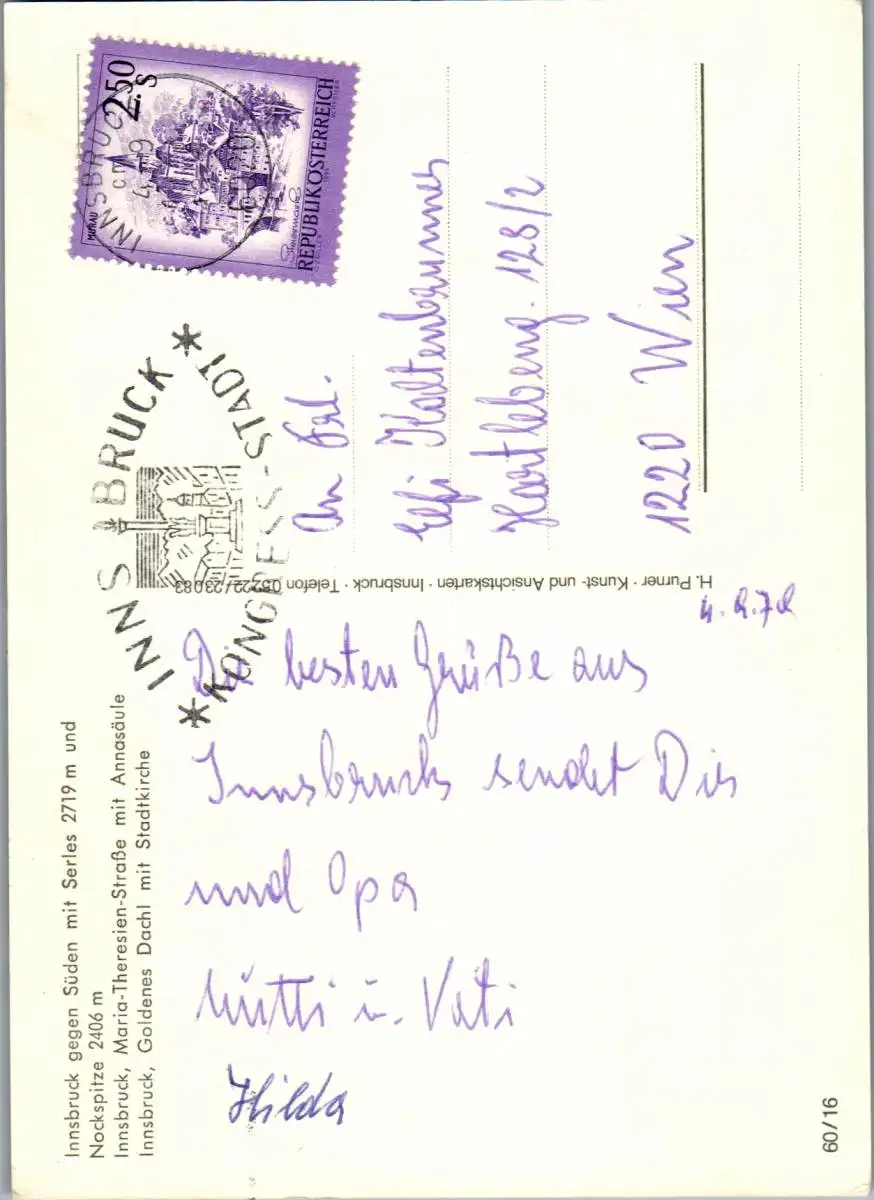 Innsbruck gegen Süden mit Serles 2719 m und
Nockspitze 2406 m
Innsbruck, Maria-Theresien-Straße mit Annasäule
Innsbruck, Goldenes Dachl mit Stadtkirche
4.9.79
Die besten Grüße aus
Innsbruck sendet Dir
und Opa
Mutti u. Vati
Hilda
60/16
H. Purner · Kunst- und Ansichtskarten · Innsbruck · Telefon 05222/23083
INNSBRUCK
KONGRESS-STADT
INNSBRUCK
6020
2.50 S
MURAU
Steiermark
REPUBLIK ÖSTERREICH
An Frl.
Elfi Kaltenbrunner
Hartlebeng. 128/2
1220 Wien